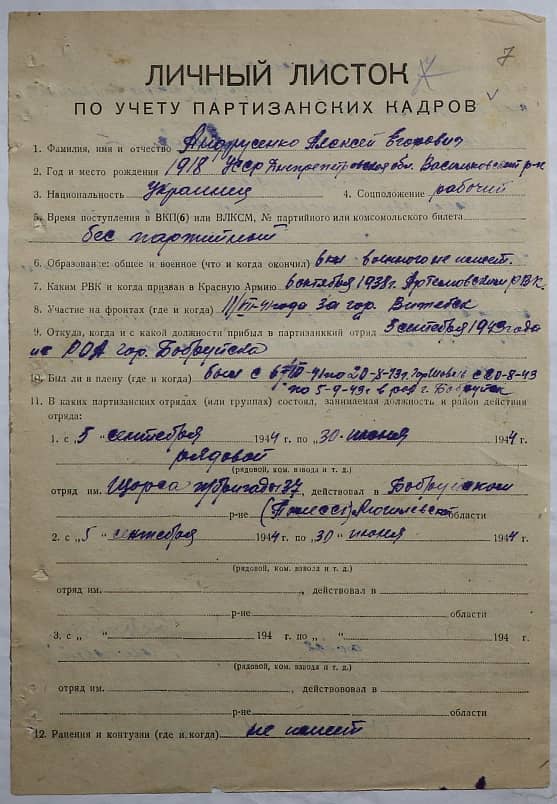 7
ЛИЧНЫЙ ЛИСТОК
ПО УЧЕТУ ПАРТИЗАНСКИХ КАДРОВ
1. Фамилия, имя и отчество Андрусенко Алексей Егорович
2. Год и место рождения 1918 УССР Днепропетровская обл. Васильковский р-н
3. Национальность украинец 4. Соцположение рабочий
5. Время поступления в ВКП(б) или ВЛКСМ, № партийного или комсомольского билета
бес партийный
6. Образование: общее и военное (что и когда окончил) 6 кл военного не имеет.
7. Каким РВК и когда призван в Красную Армию 6 сентября 1938 г. Артемовский РВК.
8. Участие на фронтах (где и когда) за гор. Витебск
9. Откуда, когда и с какой должности прибыл в партизанккий отряд 5 сентября 1943 года
из РОА гор. Бобруйска
10. Был ли в плену (где и когда) был с по 20-8-43 г. с 20-8-43
по 5-9-43 г. в г. Бобруйск
11. В каких партизанских отрядах (или группах) состоял, занимаемая должность и район действия
отряда:
1. с „5“ сентебря 1944 г. по „30“ июня 1944 г.
рядовой
(рядовой, ком. взвода и т. д.)
отряд им. Щорса бригады 37, действовал в Бобруйском
р-не (Полесск) Могилевской области
2. с „5“ сентебря 1944 г. по „30“ июня 1944 г.
(рядовой, ком. взвода и т. д.)
отряд им. , действовал в
р-не области
3. с „ “ 194 г. по „ “ 194 г.
(рядовой, ком. взвода и т. д.)
отряд им. , действововал в
р-не области
12. Ранения и контузии (где и когда) не имеет